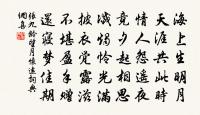 海上生明月
天涯共此時
情人怨遥夜
竟夕起相思
滅燭憐光滿
披衣覺露滋
不堪盈手贈
還寢夢佳期
張九齡望月懷遠詞典
網